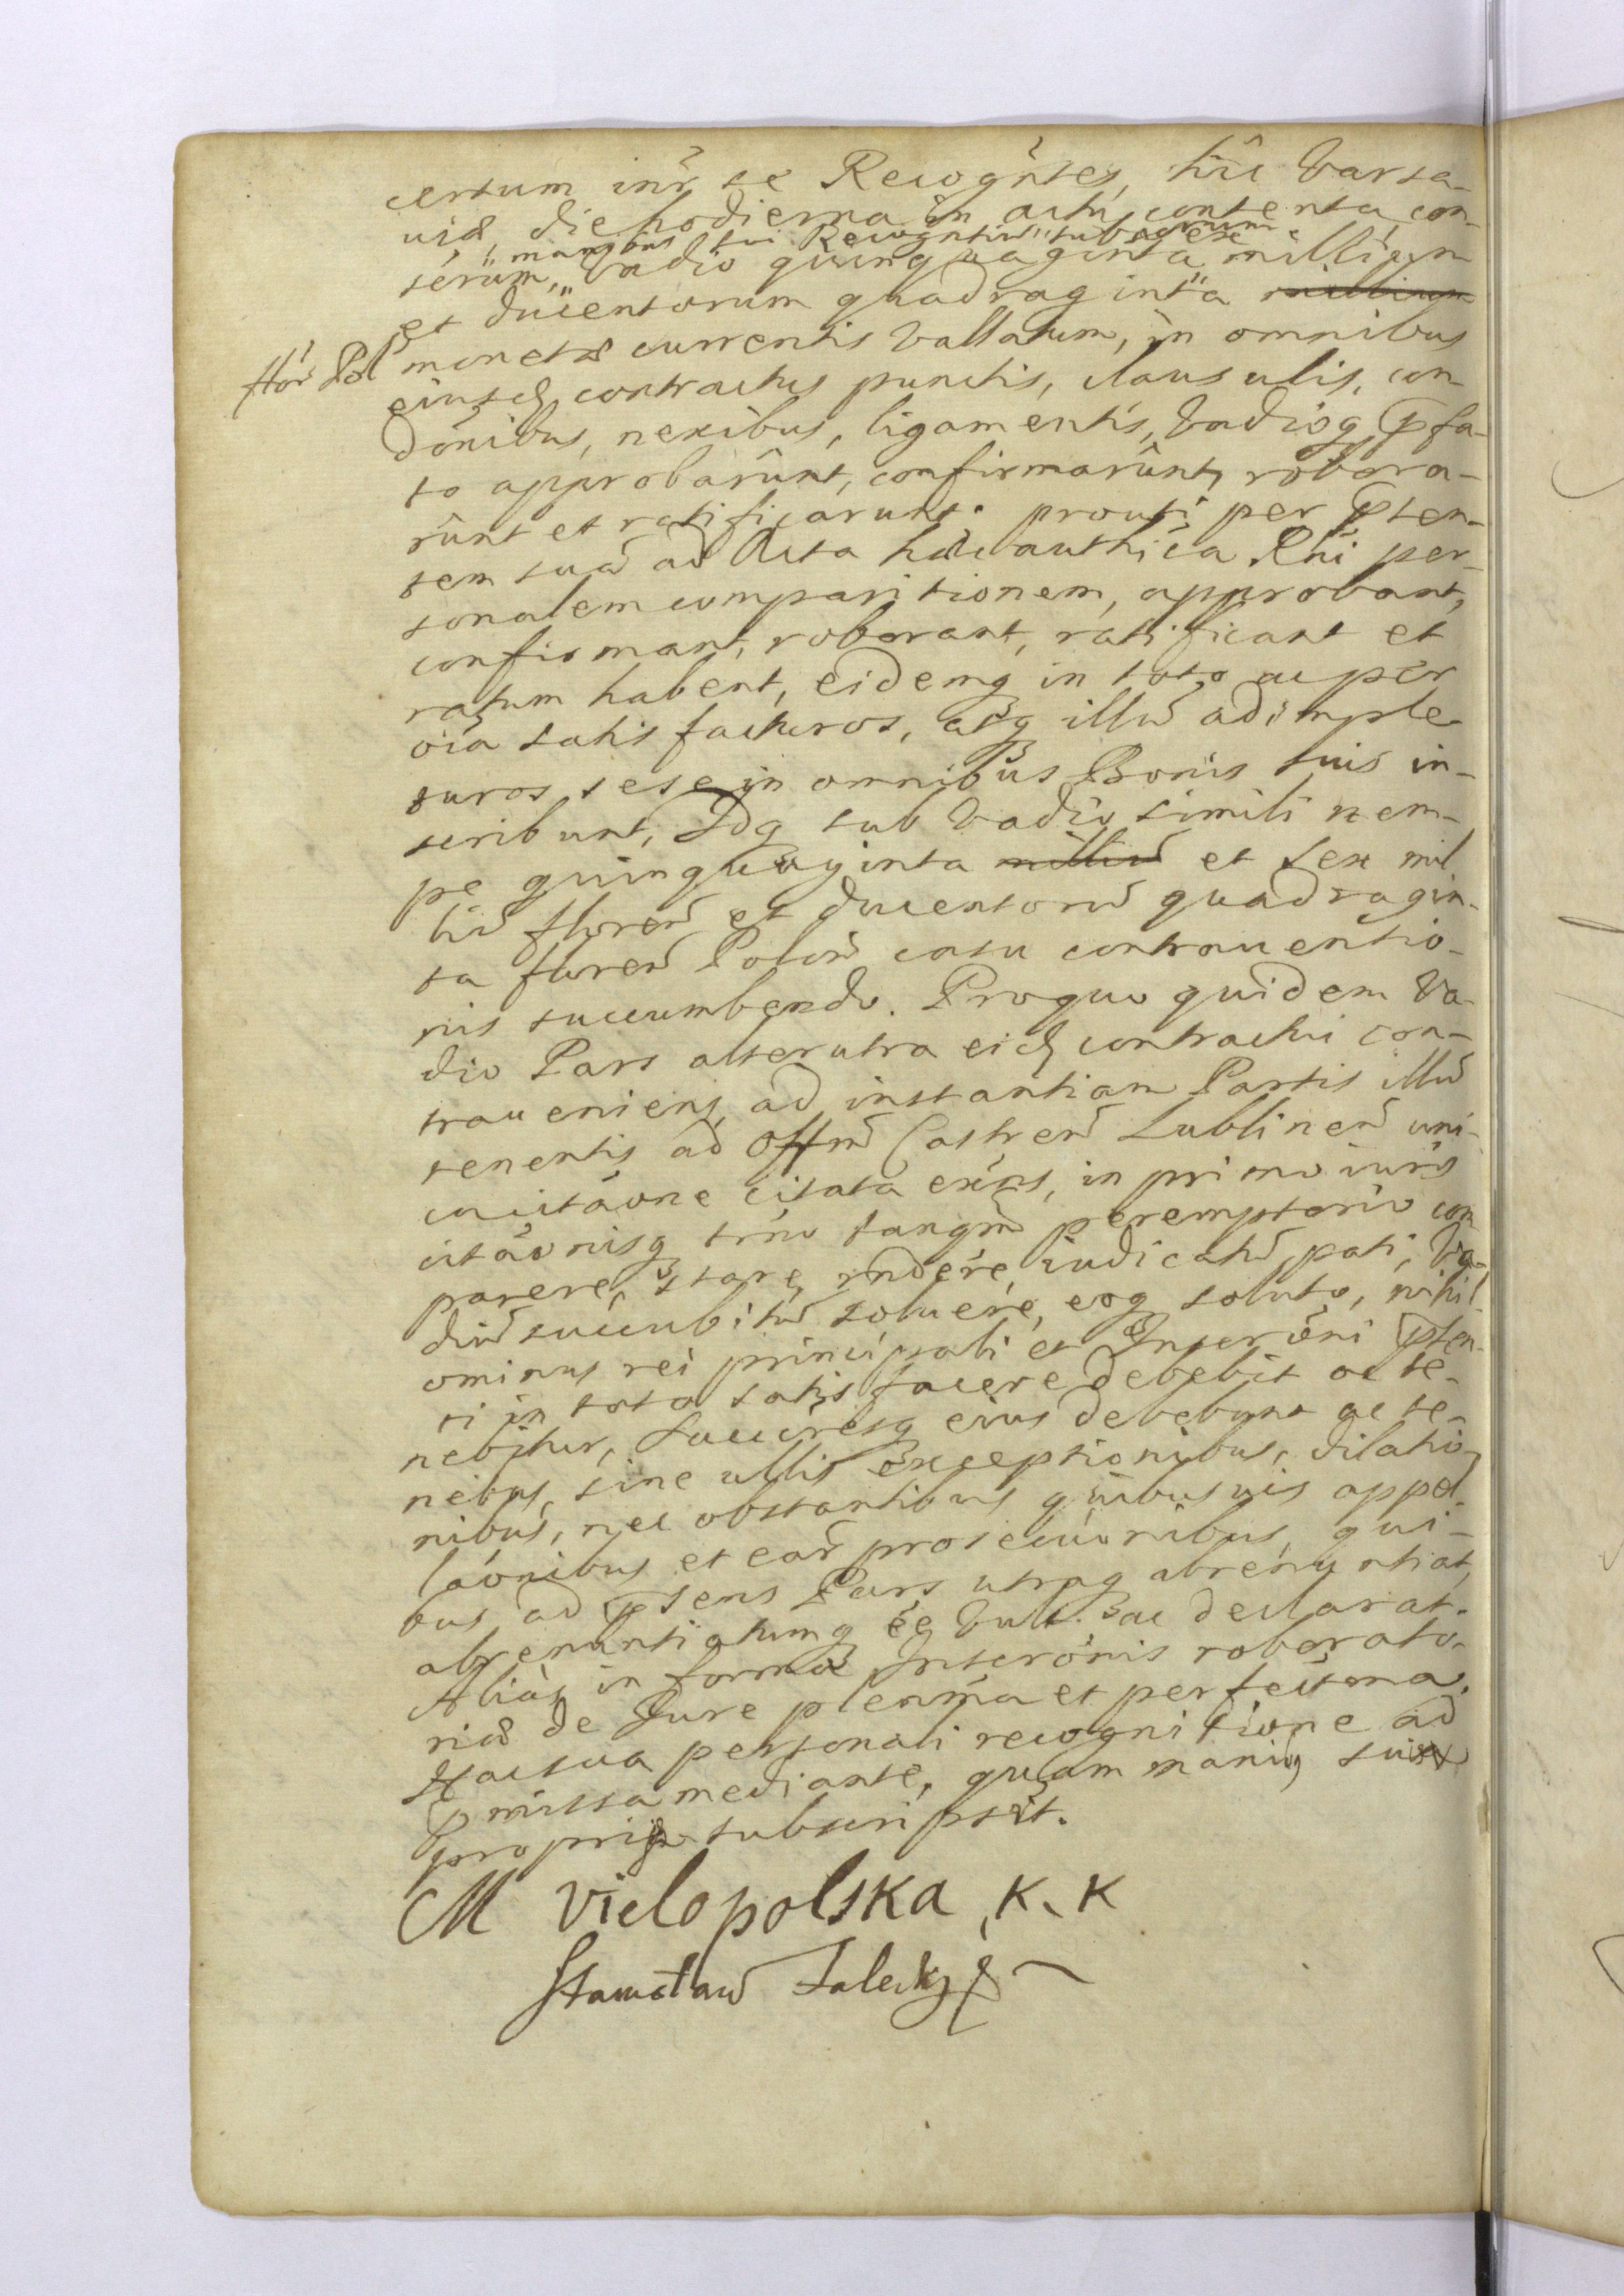 certum intr se Recogntes, hic Varsa-
uiæ, die hodierna in actu contenta con-
manibus sui Recogntiu subscriptum
tectum, Vadio quinquaginta millium
et ducentorum quadraginta
flor Pol monetæ currentis Vallatum, in omnibus
eiusd contractus punctis, clausulis, con-
dōnibus, nexibus, ligamentis, Vadioq pfa-
to approbarunt, confirmarunt, robora-
runt et ratificarunt. prouti per pten-
tem suã ad Acta hæc authica Rni per-
sonalem comparitionem, approbant,
confirmant, roborant, ratificant et
ratum habent, eidemq in toto ac per
oia satisfacturos, atq illud adimple-
turos sese in omnibus Bonis suis in-
scribunt, Idq sub Vadio simili nem-
pe quinquaginta milliũ et sex mil
liũ floren et ducentorũ quadragin-
ta floren Polon casu contrauentio-
nis succumbendo. Proquo quidem Va-
dio Pars alterutra eid contractui con-
traueniens, ad instantiam Partis illũ
tenentis ad Offm Castren Lublinen uni-
ca citãone citata exins, in primo iuris
citãonisq trno tanqm peremptorio com
parere, stare, rndere, iudicatũ pati, Va-
diũ succubitũ soluere, eoq soluto, nihil-
ominus rei principali et Inscrōni pten-
ti in toto satisfacere debebit ac te-
nebitur, Succresq eius debebunt ac te-
nebtr, sine ullis exceptionibus, dilatio-
nibus, nec obstantibus quibusuis appel-
lãonibus et ear prosecuōnibus, qui-
bus ad ptens Pars utraq abrenuntiat,
abrenuntiatumq ee Vult. ac declarat.
Alias in forma Inscrōnis roborato-
riæ de Jure plenma et perfectma.
Hac sua personali recognitione ad
pmissa mediante, quam manibus suis
propriis subscripsit.
M Vielopolska, K. K
Stanisław Zalesky